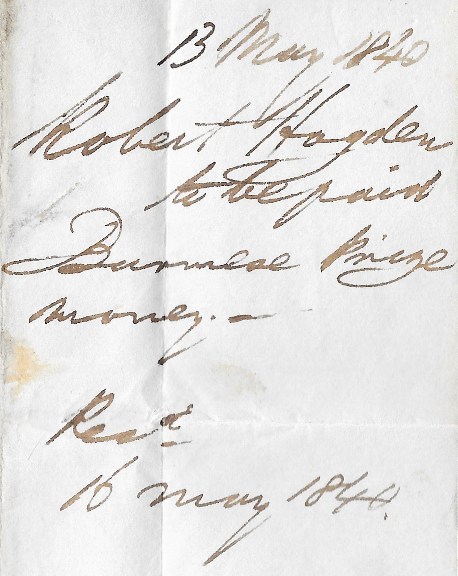 13 May 1840
Robert Hogden
to be paid
Burmese Prize
money. —
Recd
16 May 1840.